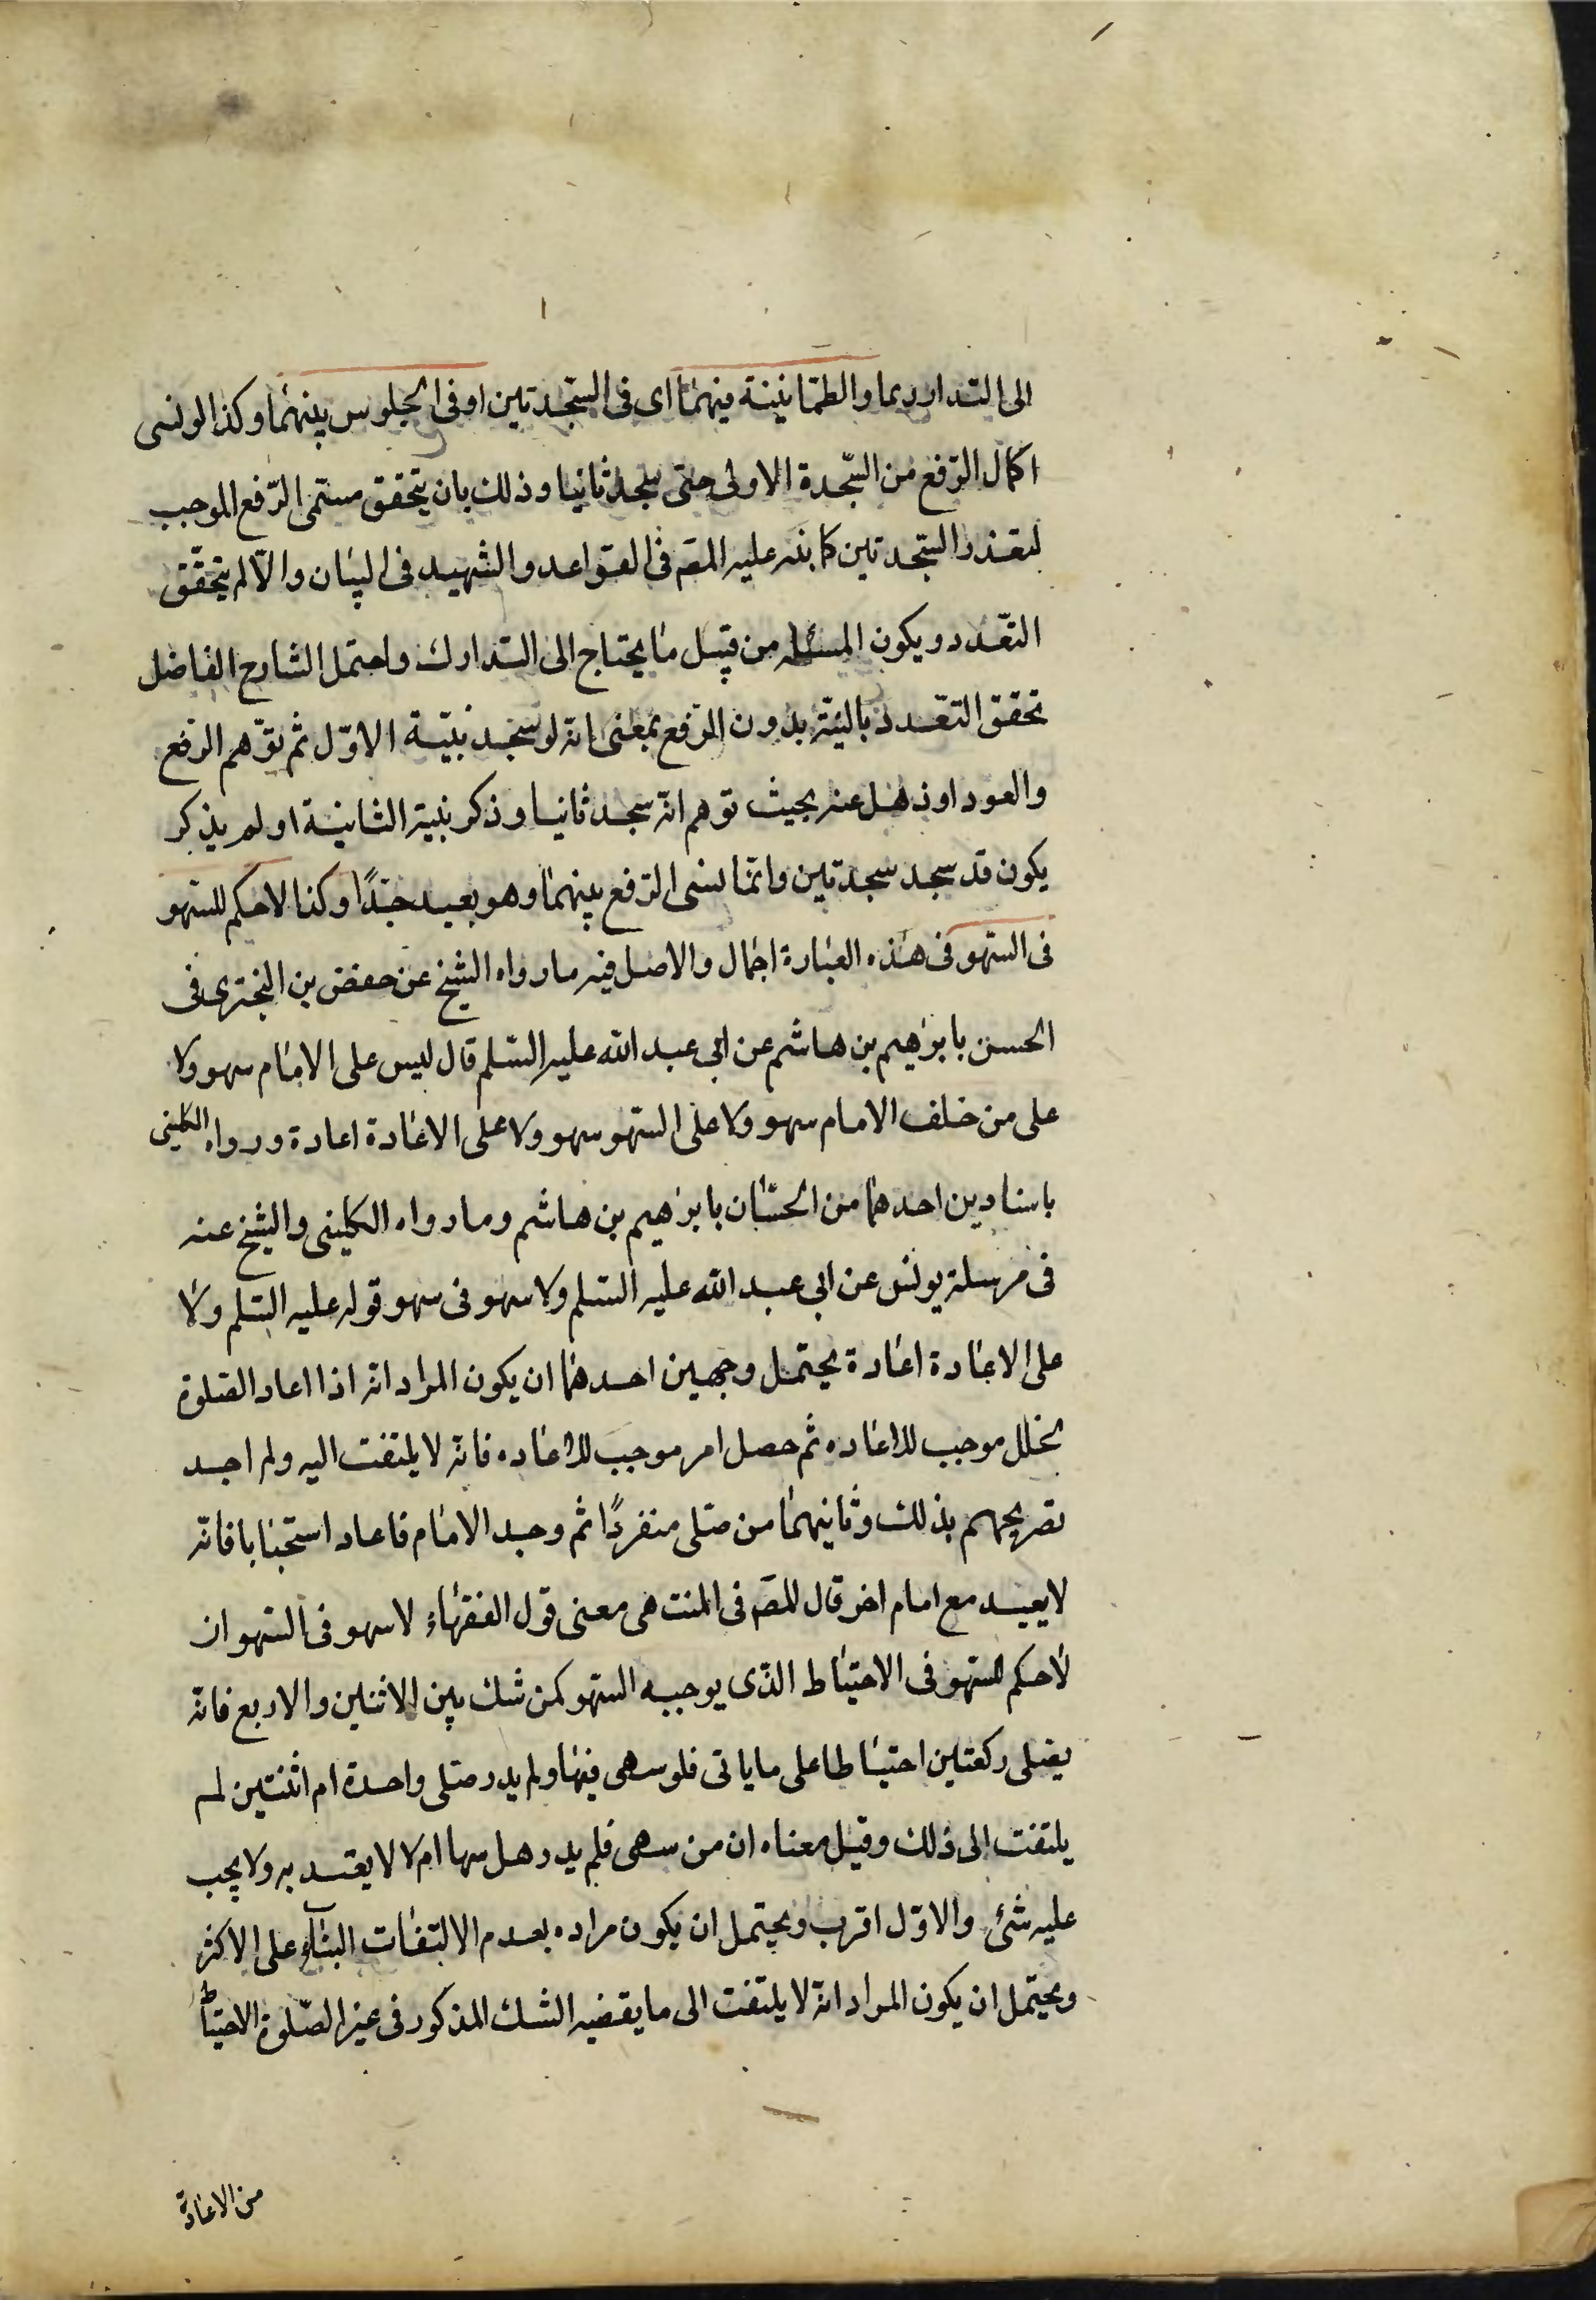 الى التدارديما والطمانينة فيهما اى فى السجدتين او فى الجلوس بينهما وكذا لو نسى
اكمال الرفع من السجدة الاولى حتى سجد ثانيا وذلك بان يتحقق مسمى الرفع الموجب
لتعذر السجدتين كما نبه عليه المص فى القواعد والشهيد فى البيان والا لم يتحقق
التعدد ويكون المسئله من قبيل ما يحتاج الى التدارك واحتمل الشارح الفاضل
تحقق التعدد بالنية بدون الرفع بمعنى انه لو سجد بنية الاول ثم توهم الرفع
والعود او ذهل عنه بحيث توهم انه سجد ثانيا وذكر بنية الثانية او لم يذكر
يكون قد سجد سجدتين وانما نسى الرفع بينهما وهو بعيد جدًا وكذا لا حكم للسهو
فى السهو فى هذه العبارة اجمال والاصل فيه ما رواه الشيخ عن حفص بن البخترى فى
الحسن بابرهيم بن هاشم عن ابى عبد الله عليه السلم قال ليس على الامام سهو ولا
على من خلف الامام سهو ولا على السهو سهو ولا على الاعادة اعادة ورواه الكلينى
باسنادين احدهما من الحسان بابرهيم بن هاشم وما رواه الكلينى والشيخ عنه
فى مرسلة يونس عن ابى عبد الله عليه السلم ولا سهو فى سهو قوله عليه السلم ولا
على الاعادة اعادة يحتمل وجهين احدهما ان يكون المراد انه اذا اعاد الصلوة
لخلل موجب للاعاده ثم حصل امر موجب للاعاده فانه لا يلتفت اليه ولم اجد
تصريحهم بذلك وثانيهما من صلى منفردًا ثم وجد الامام فاعاد استحبابا فانه
لا يعيد مع امام اخر قال المص فى المنتهى معنى قول الفقهاء لا سهو فى السهو ان
لا حكم للسهو فى الاحتياط الذى يوجبه السهو كمن شك بين الاثنين والاربع فانه
يصلى ركعتين احتياطا على ما ياتى فلو سهى فيها ولم يدر صلى واحدة ام اثنتين لم
يلتفت الى ذلك وقيل معناه ان من سهى فلم يدر هل سها ام لا لا يعتد به ولا يجب
عليه شئ والاول اقرب ويحتمل ان يكون مراده بعدم الالتفات البناء على الاكثر
ويحتمل ان يكون المراد انه لا يلتفت الى ما يقضيه الشك المذكور فى غير الصلوة الاحتياط
من الاعادة